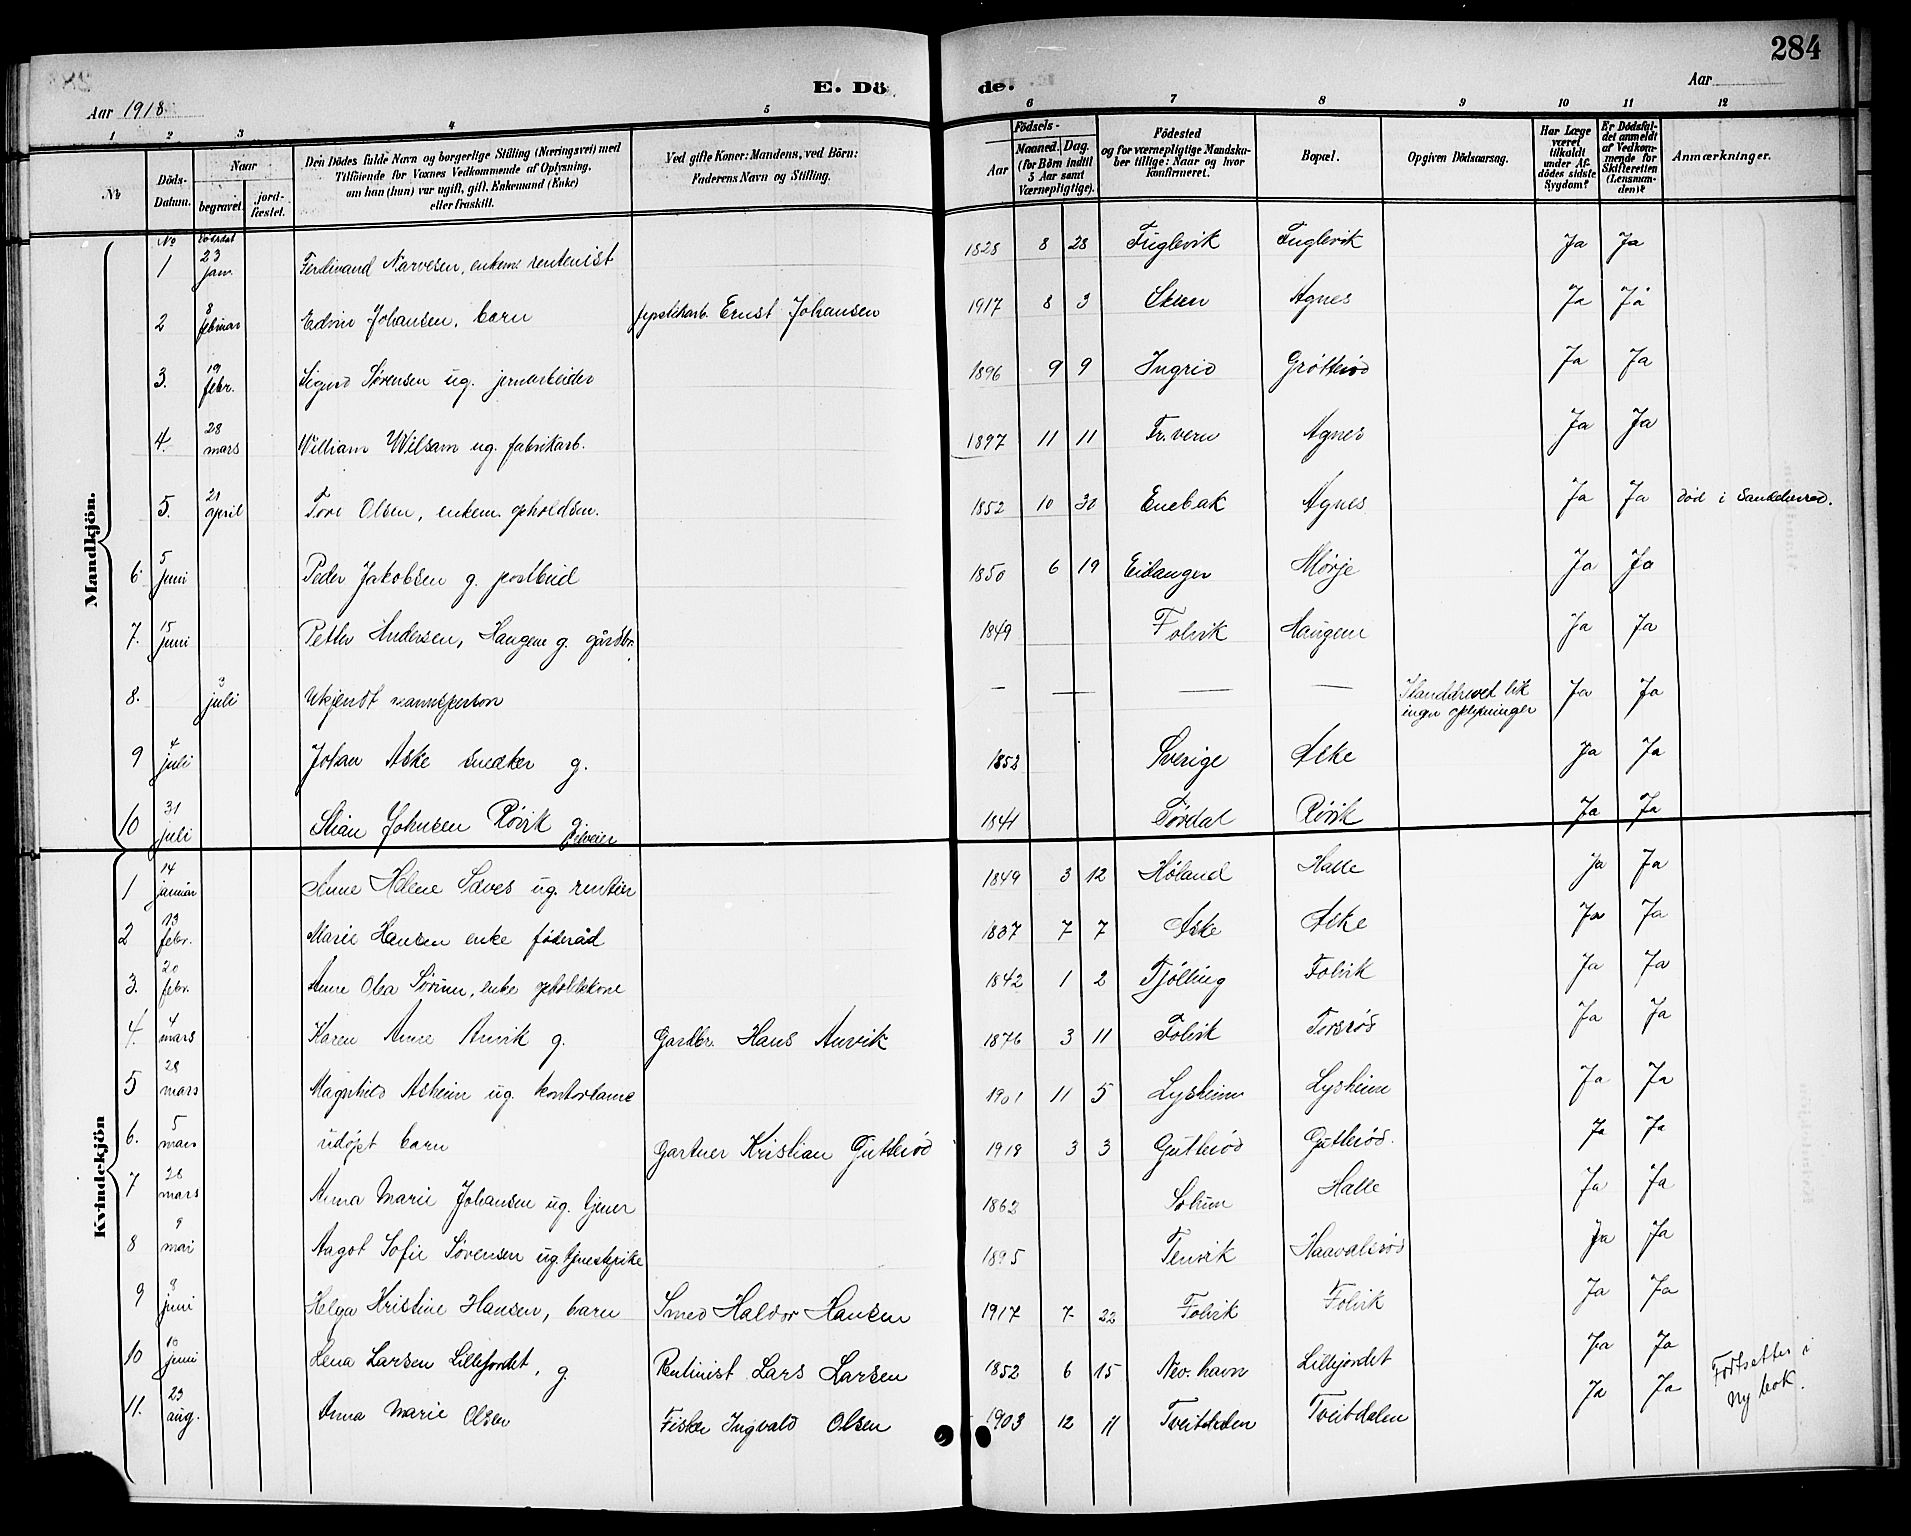 284
E. Döde.
Aar 1918
Aar
1 2 3 4 5 6 7 8 9 10 11 12
No
Döds-Datum.
Naar
begravet.
jord-fæstet.
Den Dödes fulde Navn og borgerlige Stilling (Næringsvei) med
Tilföiende for Voxnes Vedkommende af Oplysning,
om han (hun) var ugift, gift, Enkemand (Enke)
eller fraskilt.
Ved gifte Koner: Mandens, ved Börn:
Faderens Navn og Stilling.
Födsels-
Aar
Maaned. Dag.
(for Börn indtil
5 Aar samt
Værnepligtige).
Födested
og for værnepligtige Mandska-
ber tillige: Naar og hvor
konfirmeret.
Bopæl.
Opgiven Dödsaarsag.
Har Læge
været
tilkaldt
under Af-
dödes sidste
Sygdom?
Er Dödsfal-
det anmeldt
af Vedkom-
mende for
Skifteretten
(Lensman-
den)?
Anmærkninger.
Mandkjön.
No
1 23 jan. Ferdinand Narvesen, enkem. rentenist 1828 8 28 Fuglevik Fuglevik Ja Ja
2 8 februar Edvin Johansen, barn fyrstikarb. Ernst Johansen 1917 8 3 Skien Agnes Ja Ja
3. 19 febr. Sigurd Sørensen ug. jernarbeider 1896 9 9 Grøtterød Ja Ja
4. 28 mars William Wilsam ug. fabrikarb. 1897 11 11 Fr.vern Agnes Ja Ja
5. 21 april Tore Olsen, enkem. opholdsm. 1852 10 30 Enebak Agnes Ja Ja død i Sandeherred.
6. 5 juni Peder Jakobsen g. postbud 1850 6 19 Eidanger Mørje Ja Ja
7. 15 juni Petter Andersen, Haugene g. gårdbr. 1849 Folvik Haugene Ja Ja
8. 3 juli Ukjendt mannsperson — — — — Ilanddrevet lik Ja Ja
ingen oplysninger
9 4 juli Johan Aske snedker g. 1852 Sverige Aske Ja Ja
10 31 juli Stian Johnsen Røvik g. 1841 Tørdal Røvik Ja Ja
Kvindekjön
1 14 januar Anne Helene Sæves ug. rentier 1849 3 12 Høland Halle Ja Ja
2 13 febr. Marie Hansen enke føderåd 1837 7 7 Aske Aske Ja Ja
3. 20 febr. Anne Olea Sørum, enke opholdskone 1842 1 2 Tjølling Folvik Ja Ja
4. 4 mars Karen Anne Anvik g. Gardbr. Hans Anvik 1876 3 11 Folvik Torsrød Ja Ja
5 28 mars Magnhild Asheim ug. kontordame 1901 11 5 Lysheim Lysheim Ja Ja
6. 5 mars udøpt barn Gartner Kristian Gutterød 1918 3 3 Gutterød Gutterød. Ja Ja
7 26 mars Anna Marie Johansen ug. tjener 1862 Halle Ja Ja
8 9 mai Aagot Sofie Sørensen ug. tjenestpike 1895 Tenvik Haavalsrød Ja Ja
9 9 juni Helga Kristine Hansen, barn Smed Haldor Hansen 1917 7 22 Folvik Folvik Ja Ja
10 10 juni Lena Larsen Lillejordet, g Rentinist Lars Larsen 1852 6 15 Nev. havn Lillejordet Ja Ja
11. 23 aug. Anna Marie Olsen Fisker Ingvald Olsen 1903 12 11 Tveitdalen Tveitdalen Ja Ja Fortsetter i
Ny bok.